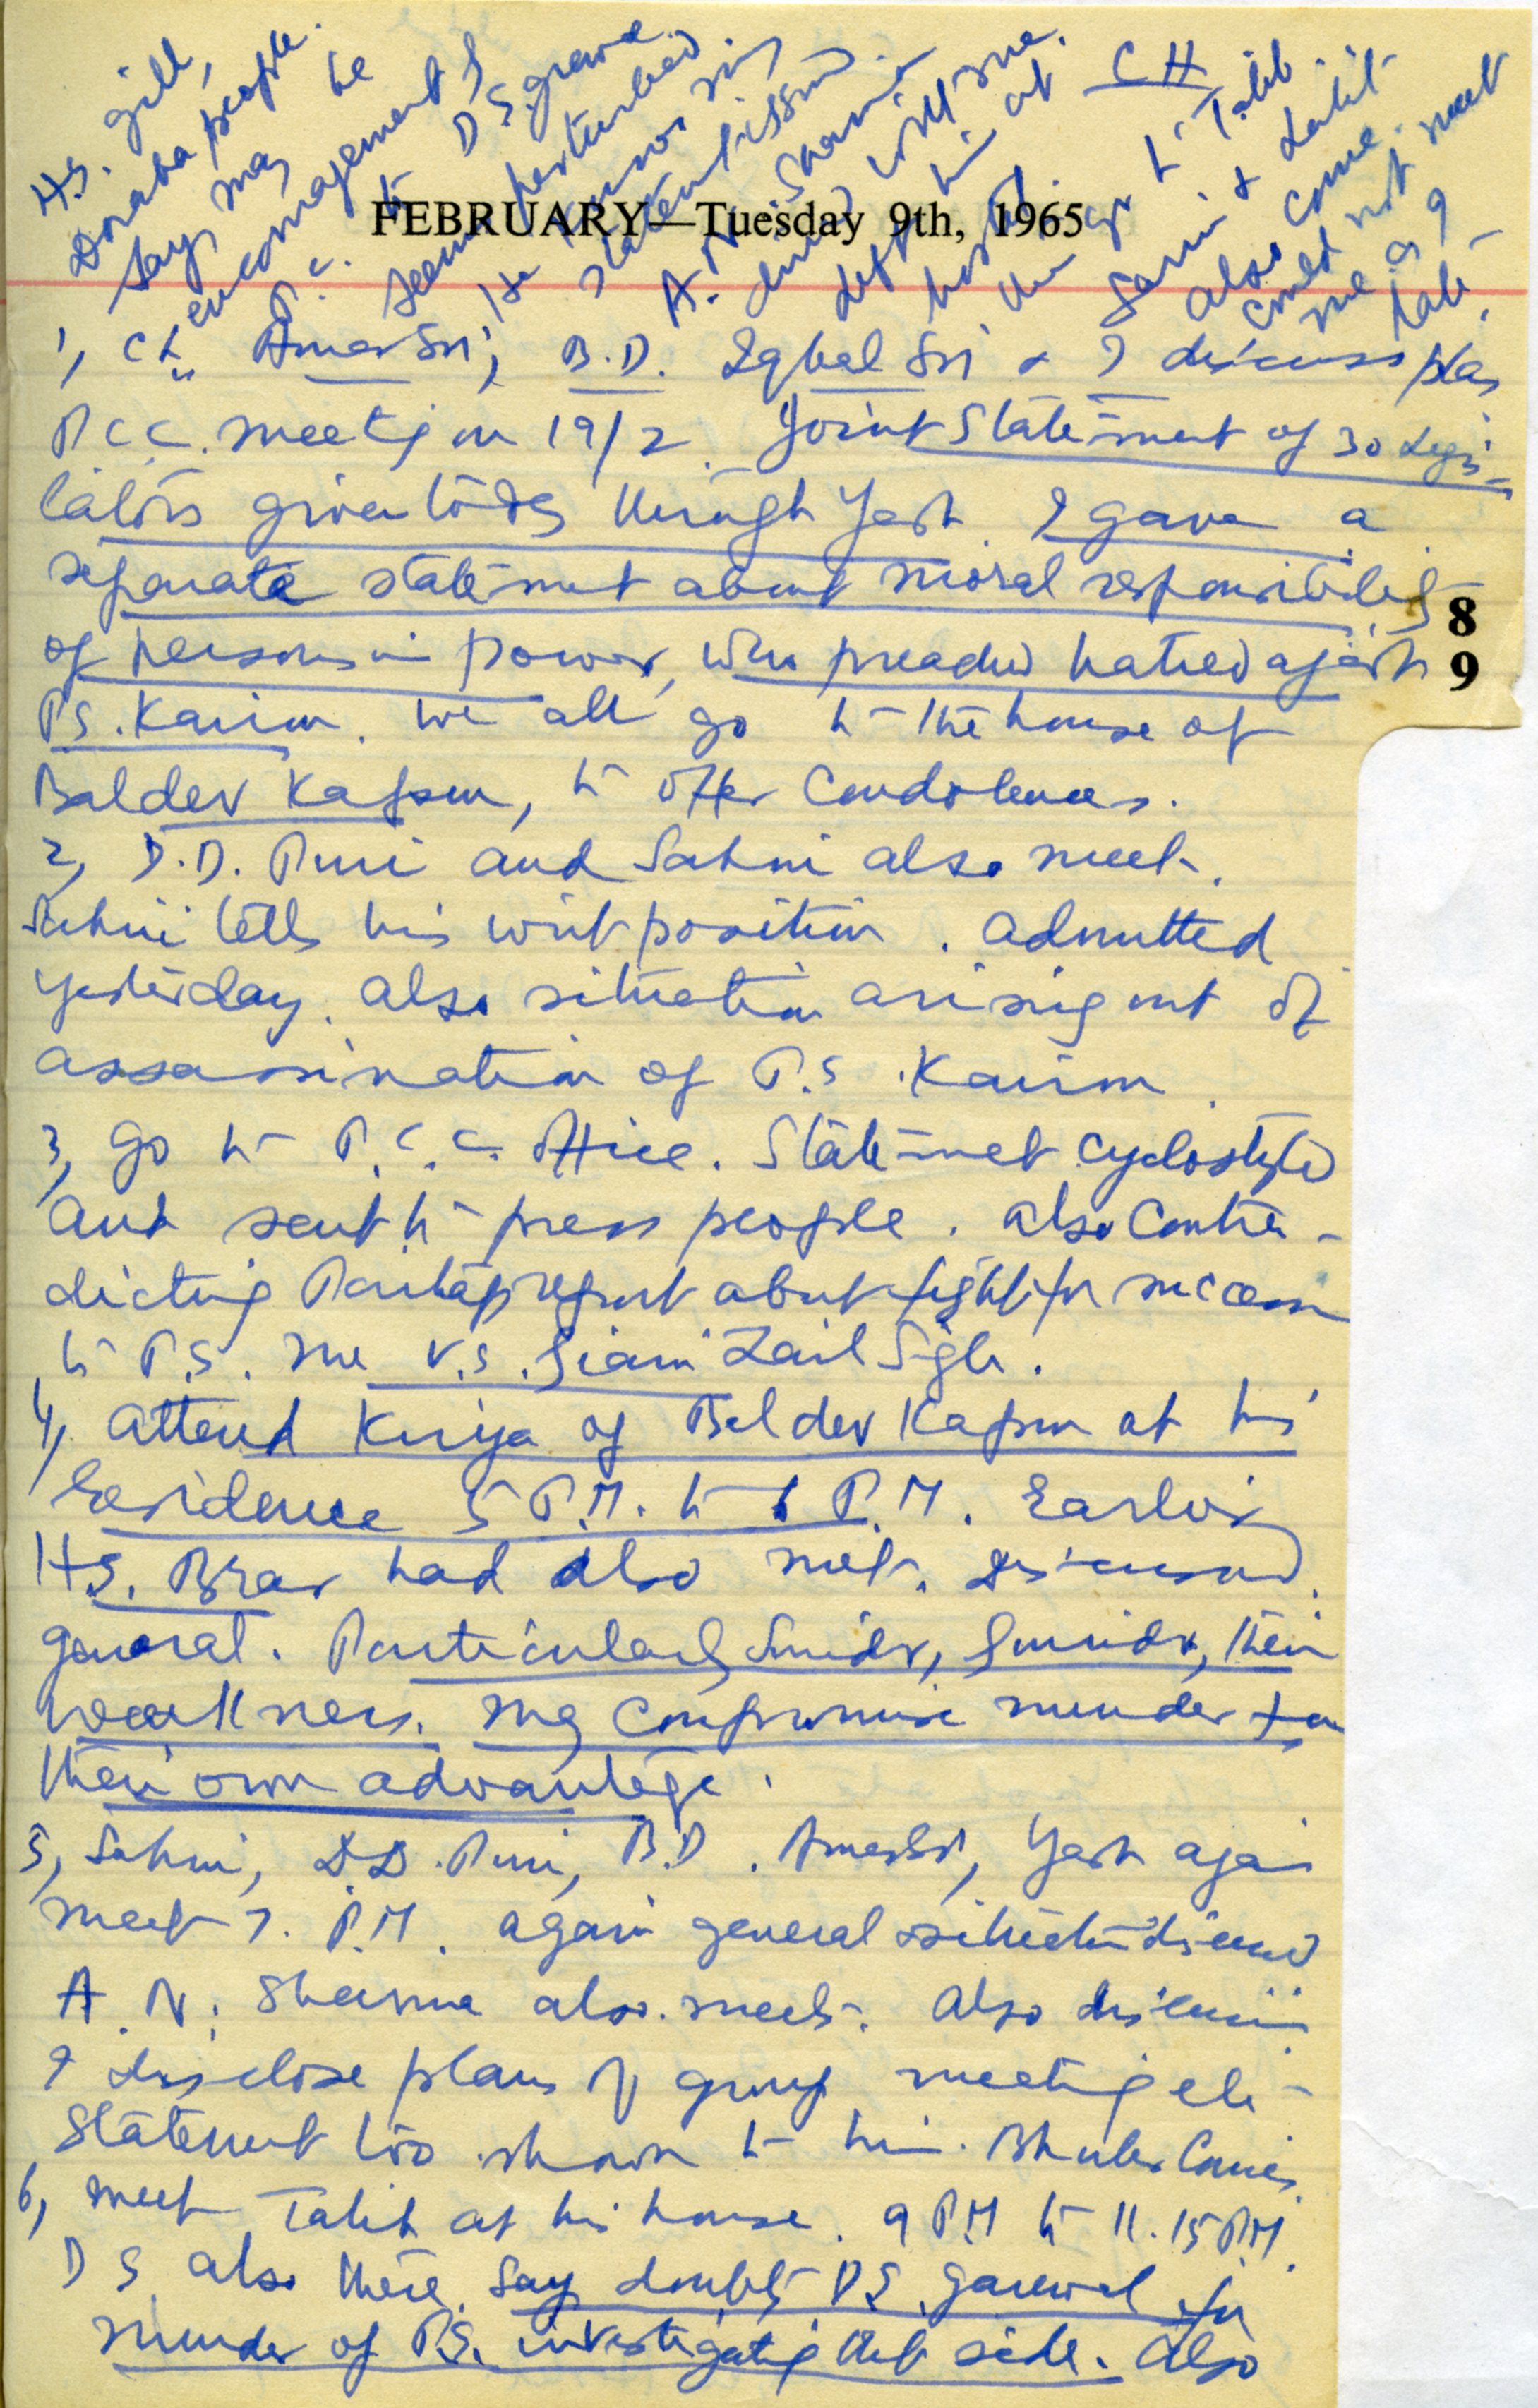 CH
H.S. Gill,
Doraha people.
Says may be
encouragement of
P.C. to D.S. Grewal
seems perturbed
He knows my
statement issued.
A.N. Sharma
dined with me.
left him at
hostel.
then go to Talib.
Saini & Lalit
also come.
could not meet
me as I
late.
FEBRUARY—Tuesday 9th, 1965
1, Ch. Amar Sri, B.D. Iqbal Sri & I discuss plan
P.C.C. meeting on 19/2. Joint Statement of 30 Legis-
lators given today through Yash. I gave a
separate statement about moral responsibility
of persons in power, who preached hatred against
P.S. Kairon. We all go to the house of
Baldev Kapoor, to offer condolences.
2, D.D. Puri and Sahni also meet.
Sahni tells his writ position. admitted
yesterday. also situation arising out of
assassination of P.S. Kairon.
3, go to P.C.C. office. Statement cyclostyled
and sent to press people. also contra-
dicting Partap report about fight for success
to P.S. me V.S. Giani Zail Singh.
4, attend Kirya of Baldev Kapoor at his
residence 5 P.M. to 6 P.M. Earlier
H.S. Brar had also met. discussed
general. Particularly Surinder, Gurinder, their
weakness. may compromise murder for
their own advantage.
5, Sahni, D.D. Puri, B.D. Amar Sri, Yash again
meet 7. P.M. again general situation discussed
A.N. Sharma also meets. Also discussion
I disclose plans of group meeting etc-
Statement too shown to him. Bhuler comes.
6, meet Talib at his house. 9 PM to 11.15 PM.
D S also there. Say doubts D.S. Garewal for
murder of P.S. investigating that side. Also
8
9